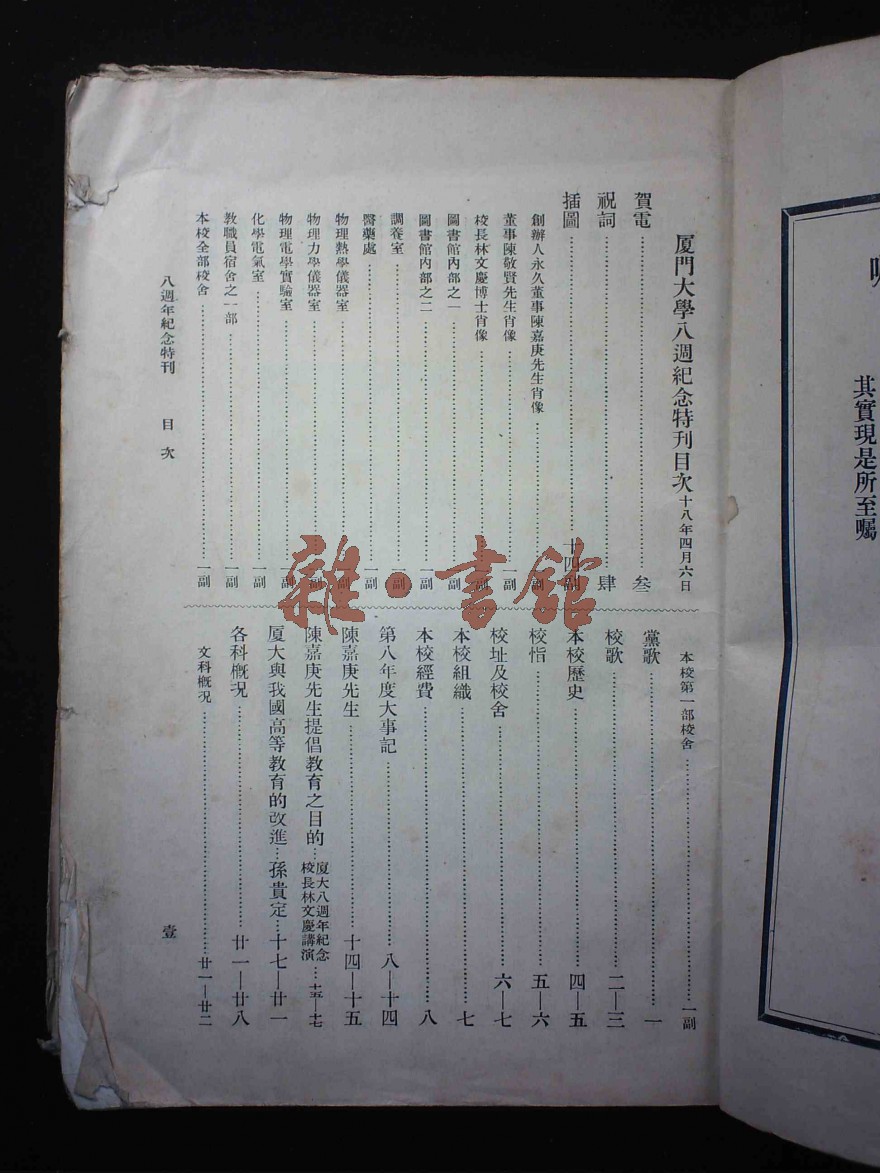 其實現是所至囑
厦門大學八週紀念特刊目次 十八年四月六日
賀電……叁
祝詞……肆
插圖……十四副
創辦人永久董事陳嘉庚先生肖像……一副
董事陳敬賢先生肖像……一副
校長林文慶博士肖像……一副
圖書館內部之一……一副
圖書館內部之二……一副
調養室……一副
醫藥處……一副
物理熱學儀器室……一副
物理力學儀器室……一副
物理電學實驗室……一副
化學電氣室……一副
教職員宿舍之一部……一副
本校全部校舍……一副
本校第一部校舍……一副
黨歌……一
校歌……二—三
本校歷史……四—五
校恉……五—六
校址及校舍……六—七
本校組織……七
本校經費……八
第八年度大事記……八—十四
陳嘉庚先生……十四—十五
陳嘉庚先生提倡教育之目的…厦大八週年紀念校長林文慶講演…十五—十七
厦大與我國高等教育的改進…孫貴定…十七—廿一
各科概況……廿一—廿八
文科概况……廿一—廿二
八週年紀念特刊 目次 壹
雜·書館